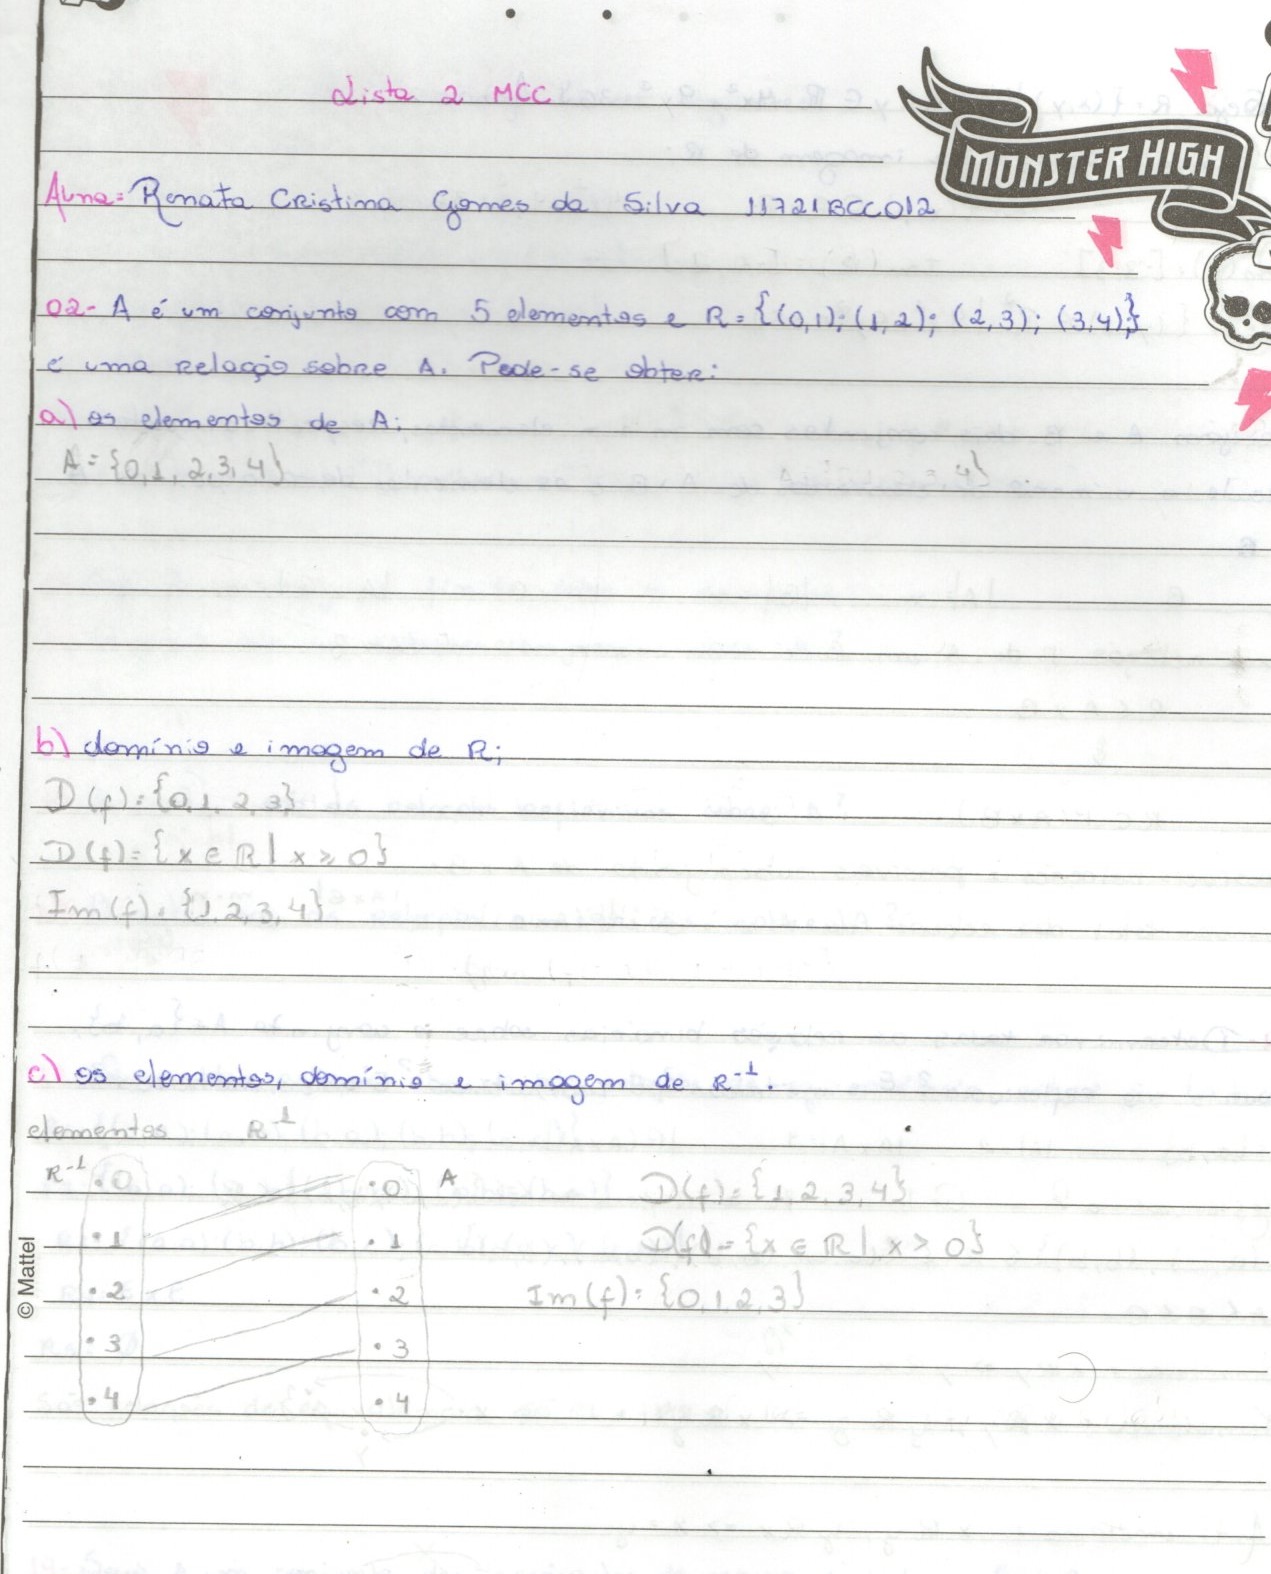 Lista 2 MCC
MONSTER HIGH
Aluna: Renata Cristina Gomes da Silva 11721BCC012
02- A é um conjunto com 5 elementos e R = {(0,1); (1,2); (2,3); (3,4)}
é uma relação sobre A. Pede-se obter:
a) os elementos de A;
A = {0,1,2,3,4}
4}
b) domínio e imagem de R;
D(f) = {0,1,2,3}
D(f) = {x ∈ R | x ≥ 0}
Im(f) = {1,2,3,4}
c) os elementos, domínio e imagem de R⁻¹.
elementos R⁻¹
R⁻¹ .0 .0 A D(f) = {1,2,3,4}
.1 .1 D(f) = {x ∈ R | x > 0}
.2 .2 Im(f) = {0,1,2,3}
.3 .3
.4 .4
© Mattel